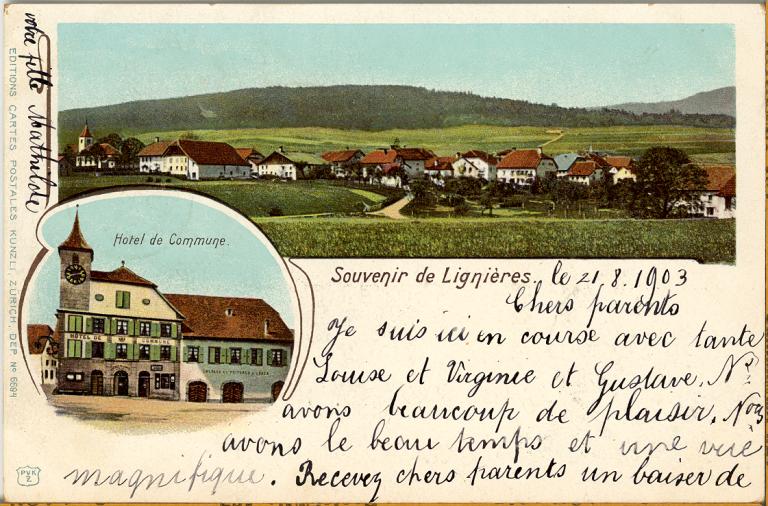 Hotel de Commune.
HÔTEL DE COMMUNE
Souvenir de Lignières. le 21.8.1903
Chers parents
Je suis ici en course avec tante
Louise et Virginie et Gustave. Ns.
avons beaucoup de plaisir. Nous
avons le beau temps et une vue
magnifique. Recevez chers parents un baiser de
votre fille Mathilde
EDITIONS CARTES POSTALES KUNZLI, ZURICH, DEP. No 6684
PVK
Z